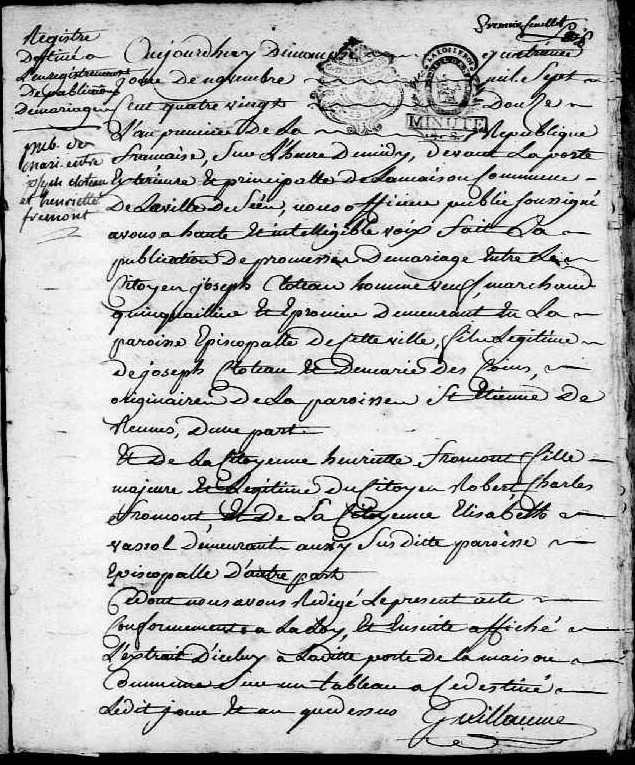 Premier feuillet
Registre
Destiné a
L'enregistrement
De publications
Demariage
pub. de
mari. entre
et henriette
fremont
Aujourdhuy Dimanche
jour de novembre mil Sept
Cent quatre vingt Douze
MINUTE
L'an premier De La Republique
francaise, Sur L'heure De midy, devant La porte
Exterieure Et principalle De Lamaison Commune
De Laville De Séez, nous officier public Soussigné
avons a haute Et intelligible voix fait La
publication De promesses Demariage Entre Le
Citoyen joseph Cloteau homme veuf, marchand
quinquaillier Et Epicier Demeurant En La
paroisse Episcopalle De Cette ville, fils Legitime
de joseph Cloteau Et De marie Des
originaire De La paroisse St Etienne De
Rennes, d'une part
Et De La Citoyenne henriette fromont fille
majeure Et Legitime Du Citoyen Robert Charles
fromont, Et De La Citoyenne Elisabeth
vassol Demeurant aussy Susditte paroisse
Episcopalle D'autre part
Cedont nous avons Redigé Le present acte
Conformement a La Loy, Et Ensuite affiché
L'extrait D'icelluy a Laditte porte de la maison
Commune Sur un tableau a Ce destiné
Ledit jour Et an que dessus Guillaume